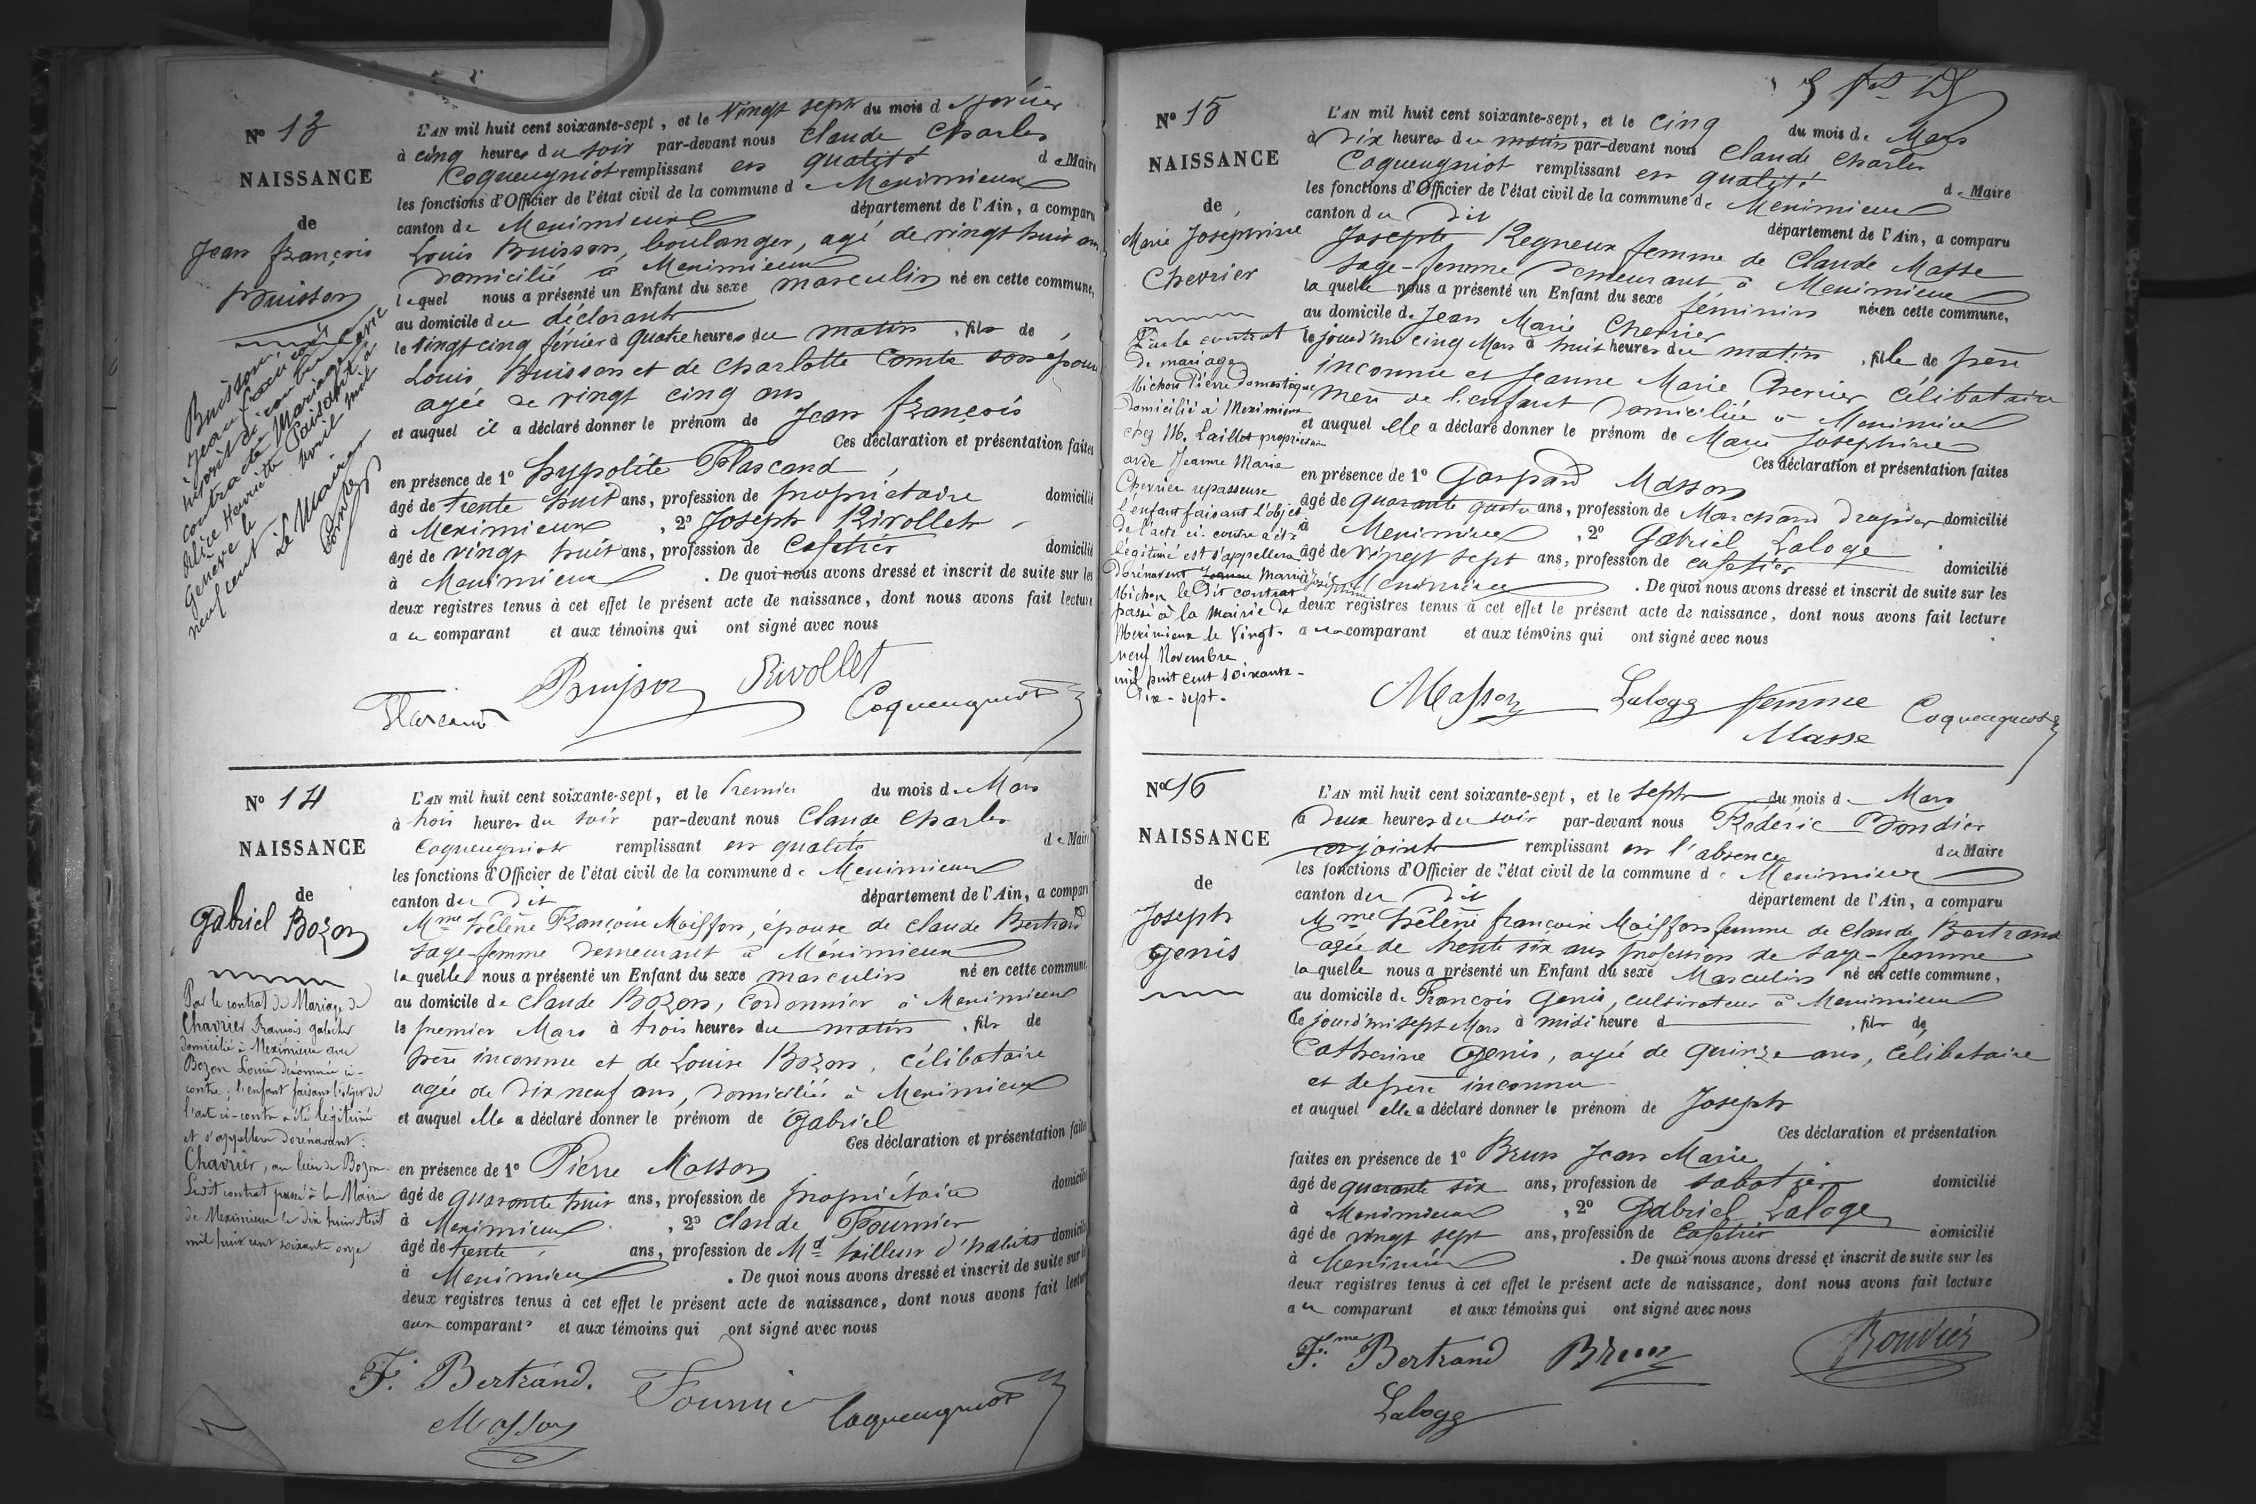 N° 13
NAISSANCE
de
Jean françois
Buisson
Buisson
Jean françois
inscrit ci-contre a
contracté mariage avec
Alice Henriette Paisant à
Genève le avril mil
neuf cent
Le Maire
L'AN mil huit cent soixante-sept, et le vingt sept du mois d février
à cinq heures du soir par-devant nous Claude Charles
Coqueugniot remplissant en qualité de Maire
les fonctions d'Officier de l'état civil de la commune de Meximieux
canton de Meximieux département de l'Ain, a comparu
Louis Buisson, boulanger, agé de vingt huit ans
domicilié à Meximieux
lequel nous a présenté un Enfant du sexe masculin né en cette commune,
au domicile du déclarant
le vingt cinq février à quatre heures du matin, fils de
Louis Buisson et de Charlotte Comte son épouse
agée de vingt cinq ans
et auquel il a déclaré donner le prénom de Jean françois
Ces déclaration et présentation faites
en présence de 1° hypolite Flascand
âgé de trente huit ans, profession de propriétaire domicilié
à Meximieux, 2° Joseph Rivollet
âgé de vingt huit ans, profession de Cafetier domicilié
à Meximieux. De quoi nous avons dressé et inscrit de suite sur les
deux registres tenus à cet effet le présent acte de naissance, dont nous avons fait lecture
au comparant et aux témoins qui ont signé avec nous
Buisson Rivollet
Coqueugniot
N° 14
NAISSANCE
de
Gabriel Bozon
Par le contrat de Mariage de
Chavrier François galocher
domicilié à Meximieux avec
Bozon Louise dénommée ci-
contre, l'enfant faisant l'objet de
l'acte ci-contre a été légitimé
et s'appellera dorénavant:
Chavrier, au lieu de Bozon.
Ledit contrat passé à la Mairie
de Meximieux le dix huit Août
mil huit cent soixante onze
L'AN mil huit cent soixante-sept, et le Premier du mois de Mars
à trois heures du soir par-devant nous Claude Charles
Coqueugniot remplissant en qualité de Maire
les fonctions d'Officier de l'état civil de la commune de Meximieux
canton du dit département de l'Ain, a comparu
Mme hélène Françoise Moiffon, épouse de Claude Bertrand
sage-femme demeurant à Méximieux
laquelle nous a présenté un Enfant du sexe masculin né en cette commune,
au domicile de Claude Bozon, Cordonnier à Meximieux
le premier Mars à trois heures du matin, fils de
père inconnu et de Louise Bozon, célibataire
agée de dix neuf ans, domiciliée à Meximieux
et auquel elle a déclaré donner le prénom de Gabriel
Ces déclaration et présentation faites
en présence de 1° Pierre Masson
âgé de quarante huit ans, profession de propriétaire domicilié
à Meximieux, 2° Claude Fournier
âgé de trente ans, profession de Md tailleur d'habits domicilié
à Meximieux. De quoi nous avons dressé et inscrit de suite sur les
deux registres tenus à cet effet le présent acte de naissance, dont nous avons fait lecture
aux comparants et aux témoins qui ont signé avec nous
F. Bertrand. Fournier Coqueugniot
Masson
N° 15
NAISSANCE
de
Marie Josephine
Chevrier
Par le contrat
de mariage
Michon Pierre domestique
domicilié à Meximieux
chez M. Laillot propriétaire
avec Jeanne Marie
Chevrier repasseuse
l'enfant faisant l'objet
de l'acte ci-contre a été
légitimé est s'appellera
dorénavant Jeanne Marie Joséphine
Michon le Dit contrat
passé à la Mairie de
Meximieux le Vingt-
neuf Novembre
mil huit cent soixante-
dix-sept.
L'AN mil huit cent soixante-sept, et le cinq du mois de Mars
à dix heures du matin par-devant nous Claude Charles
Coqueugniot remplissant en qualité de Maire
les fonctions d'Officier de l'état civil de la commune de Meximieux
canton du dit département de l'Ain, a comparu
Josephte Regneux femme de Claude Masse
sage-femme demeurant à Meximieux
laquelle nous a présenté un Enfant du sexe féminin née en cette commune,
au domicile de Jean Marie Chevrier
le jourd'hui cinq Mars à huit heures du matin, fille de père
inconnu et Jeanne Marie Chevrier célibataire
mère de l'enfant domiciliée à Meximieux
et auquel elle a déclaré donner le prénom de Marie Josephine
Ces déclaration et présentation faites
en présence de 1° Gaspard Masson
âgé de quarante quatre ans, profession de Marchand drapier domicilié
à Meximieux, 2° Gabriel Laloge
âgé de vingt sept ans, profession de cafetier domicilié
à Meximieux. De quoi nous avons dressé et inscrit de suite sur les
deux registres tenus à cet effet le présent acte de naissance, dont nous avons fait lecture
a la comparant et aux témoins qui ont signé avec nous
Masson Laloge femme Coqueugniot
Masse
N° 16
NAISSANCE
de
Joseph
Genis
L'AN mil huit cent soixante-sept, et le sept du mois de Mars
à deux heures du soir par-devant nous Fréderic
adjoint remplissant en l'absence du Maire
les fonctions d'Officier de l'état civil de la commune de Meximieux
canton du dit département de l'Ain, a comparu
Mme hélène françoise Moiffon femme de Claude Bertrand
agée de trente six ans profession de sage-femme
laquelle nous a présenté un Enfant du sexe Masculin né en cette commune,
au domicile de François Genis, cultivateur à Meximieux
le jourd'hui sept Mars à midi heure d, fils de
Catherine Genis, agée de quinze ans, célibataire
et de père inconnu
et auquel elle a déclaré donner le prénom de Joseph
Ces déclaration et présentation
faites en présence de 1° Brun Jean Marie
âgé de quarante six ans, profession de sabotier domicilié
à Meximieux, 2° Gabriel Laloge
âgé de vingt sept ans, profession de Cafetier domicilié
à Meximieux. De quoi nous avons dressé et inscrit de suite sur les
deux registres tenus à cet effet le présent acte de naissance, dont nous avons fait lecture
au comparant et aux témoins qui ont signé avec nous
Fme Bertrand Brun
Laloge